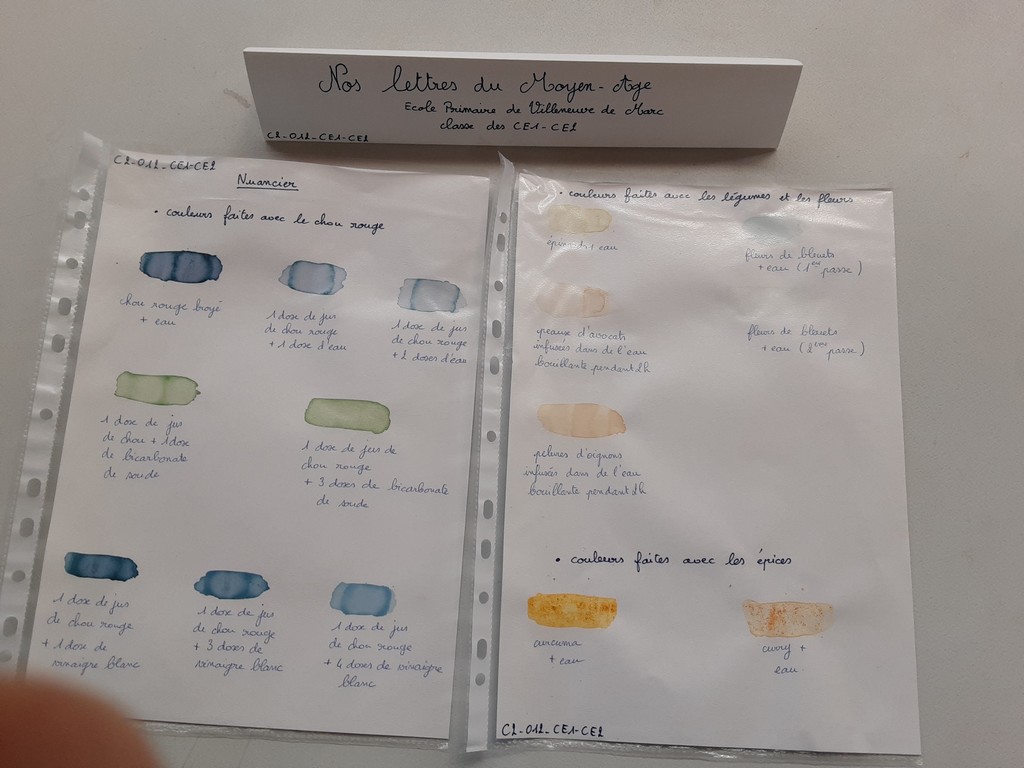 Nos lettres du Moyen-Age
Ecole Primaire de Villeneuve de Marc
classe des CE1-CE2
C2_012_CE1-CE2
C2_012_CE1-CE2
Nuancier
• couleurs faites avec le chou rouge
chou rouge broyé
+ eau
1 dose de jus
de chou rouge
+ 1 dose d'eau
1 dose de jus
de chou rouge
+ 2 doses d'eau
1 dose de jus
de chou + 1 dose
de bicarbonate
de soude
1 dose de jus de
chou rouge
+ 3 doses de bicarbonate
de soude
1 dose de jus
de chou rouge
+ 1 dose de
vinaigre blanc
1 dose de jus
de chou rouge
+ 3 doses de
vinaigre blanc
1 dose de jus
de chou rouge
+ 4 doses de vinaigre
blanc
• couleurs faites avec les légumes et les fleurs
épinards + eau
fleurs de bleuets
+ eau (1ère passe)
peaux d'avocats
infusées dans de l'eau
bouillante pendant 2h
fleurs de bleuets
+ eau (2ème passe)
pelures d'oignons
infusées dans de l'eau
bouillante pendant 2h
• couleurs faites avec les épices
curcuma
+ eau
curry +
eau
C2_012_CE1-CE2